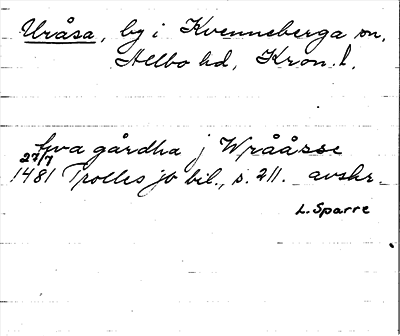 Uråsa, by i Kvenneberga sn,
Allbo hd, Kron. l.
två gårdha j Wrååsse
27/7
1481 Trolles jb bil., s. 211. avskr.
L. Sparre